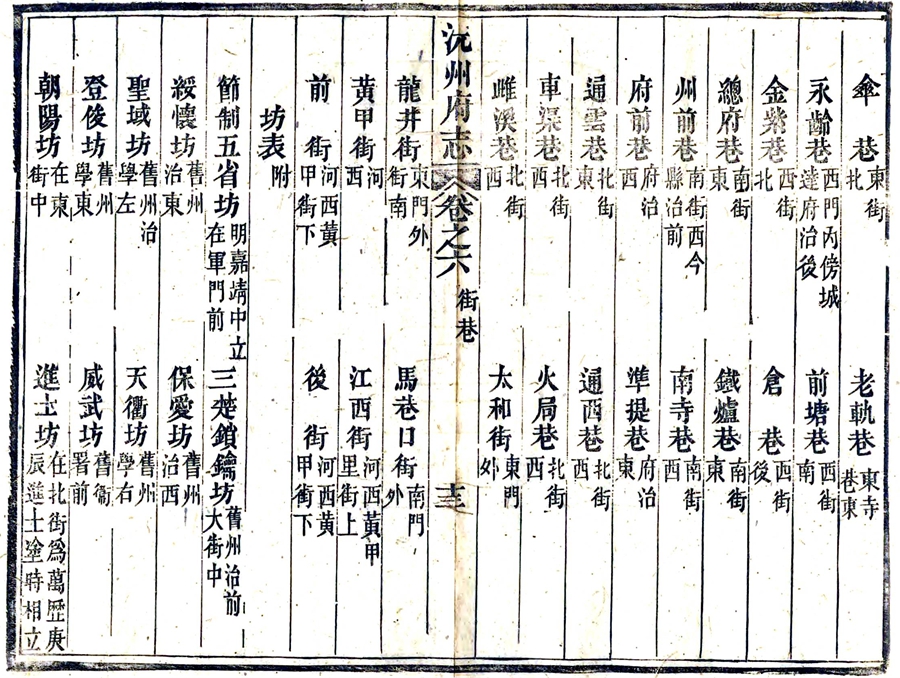 傘巷東街北 老軌巷東寺巷東
永齡巷西門內傍城達府治後 前塘巷西街南
金紫巷西街北 倉巷西街後
總府巷南街東 鐵爐巷南街東
州前巷南街西今縣治前 南寺巷南街西
府前巷府治西 準提巷府治東
通雲巷北街東 通西巷北街西
車渠巷北街西 火局巷北街西
雎溪巷北街西 太和街東門外
沅州府志 卷之六 街巷 十三
龍井街東門外街南 馬巷口街南門外
黃甲街河西 江西街河西黃甲里街上
前街河西黃甲街下 後街河西黃甲街下
坊表附
節制五省坊明嘉靖中立在軍門前 三楚鎖鑰坊舊州治前大街中
綏懷坊舊州治東 保愛坊舊州治西
聖域坊舊州治學左 天衢坊舊州學右
登俊坊舊州學東 威武坊舊衞署前
朝陽坊在東街中 進士坊在北街爲萬歷庚辰進士塗時相立